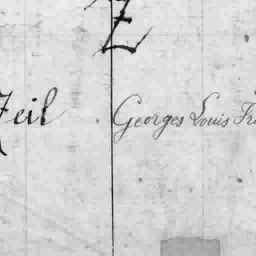 Z
Zeil Georges Louis Fr